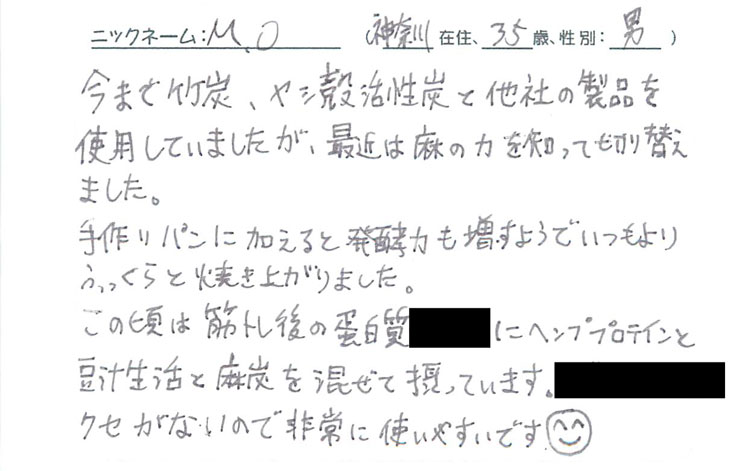 ニックネーム:M.O (神奈川在住、35歳、性別:男)
今まで竹炭、ヤシ殻活性炭と他社の製品を
使用していましたが、最近は麻の力を知って切り替え
ました。
手作りパンに加えると発酵力も増すようでいつもより
ふっくらと焼き上がりました。
この頃は筋トレ後の蛋白質にヘンププロテインと
豆汁生活と麻炭を混ぜて摂っています。
クセがないので非常に使いやすいです